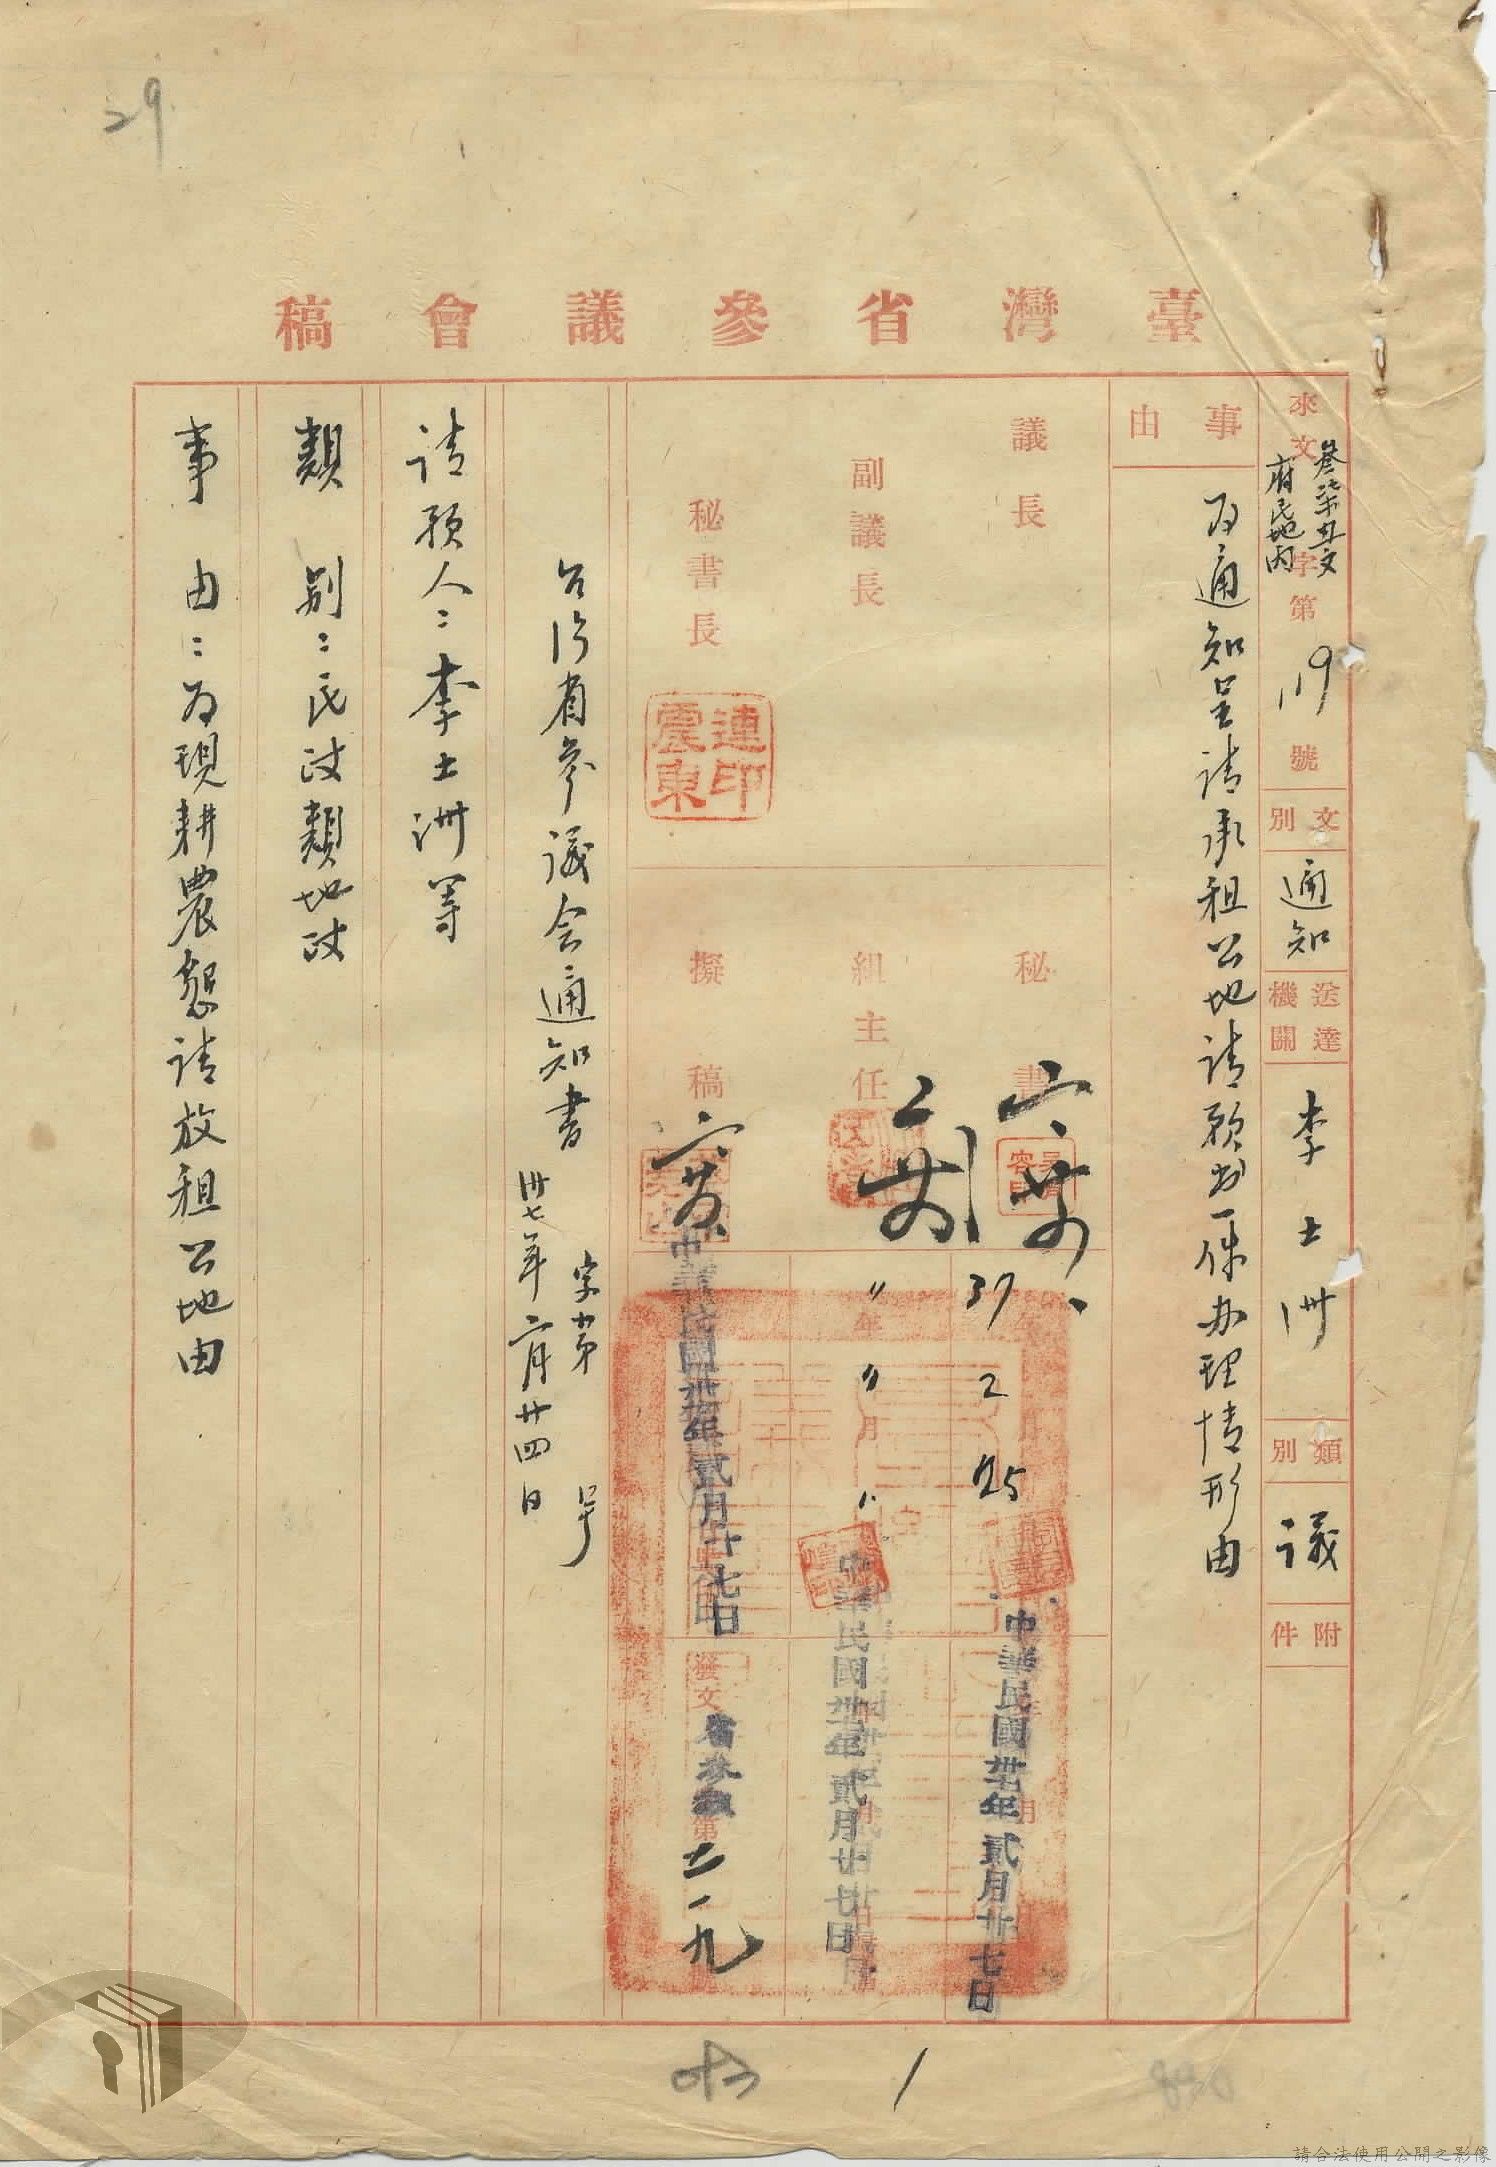 29
臺灣省參議會稿
來文 叁柒丑文府民地丙字第119號
文別 通知
送達機關 李士洲
類別 議
附件
事由
為通知呈請承租公地請願書一件办理情形由
議長
副議長
秘書長
連震東印
秘書
組主任
擬稿
37年2月25
〃年〃月〃
中華民國卅七年貳月廿七日
中華民國卅七年貳月廿七日
中華民國卅七年貳月廿七日
發文
第 一一九
台湾省參議会通知書
字第 号
卅七年二月廿四日
請願人：李士洲等
類別：民政類地政
事由：為現耕農懇請放租公地由
1
請合法使用公開之影像